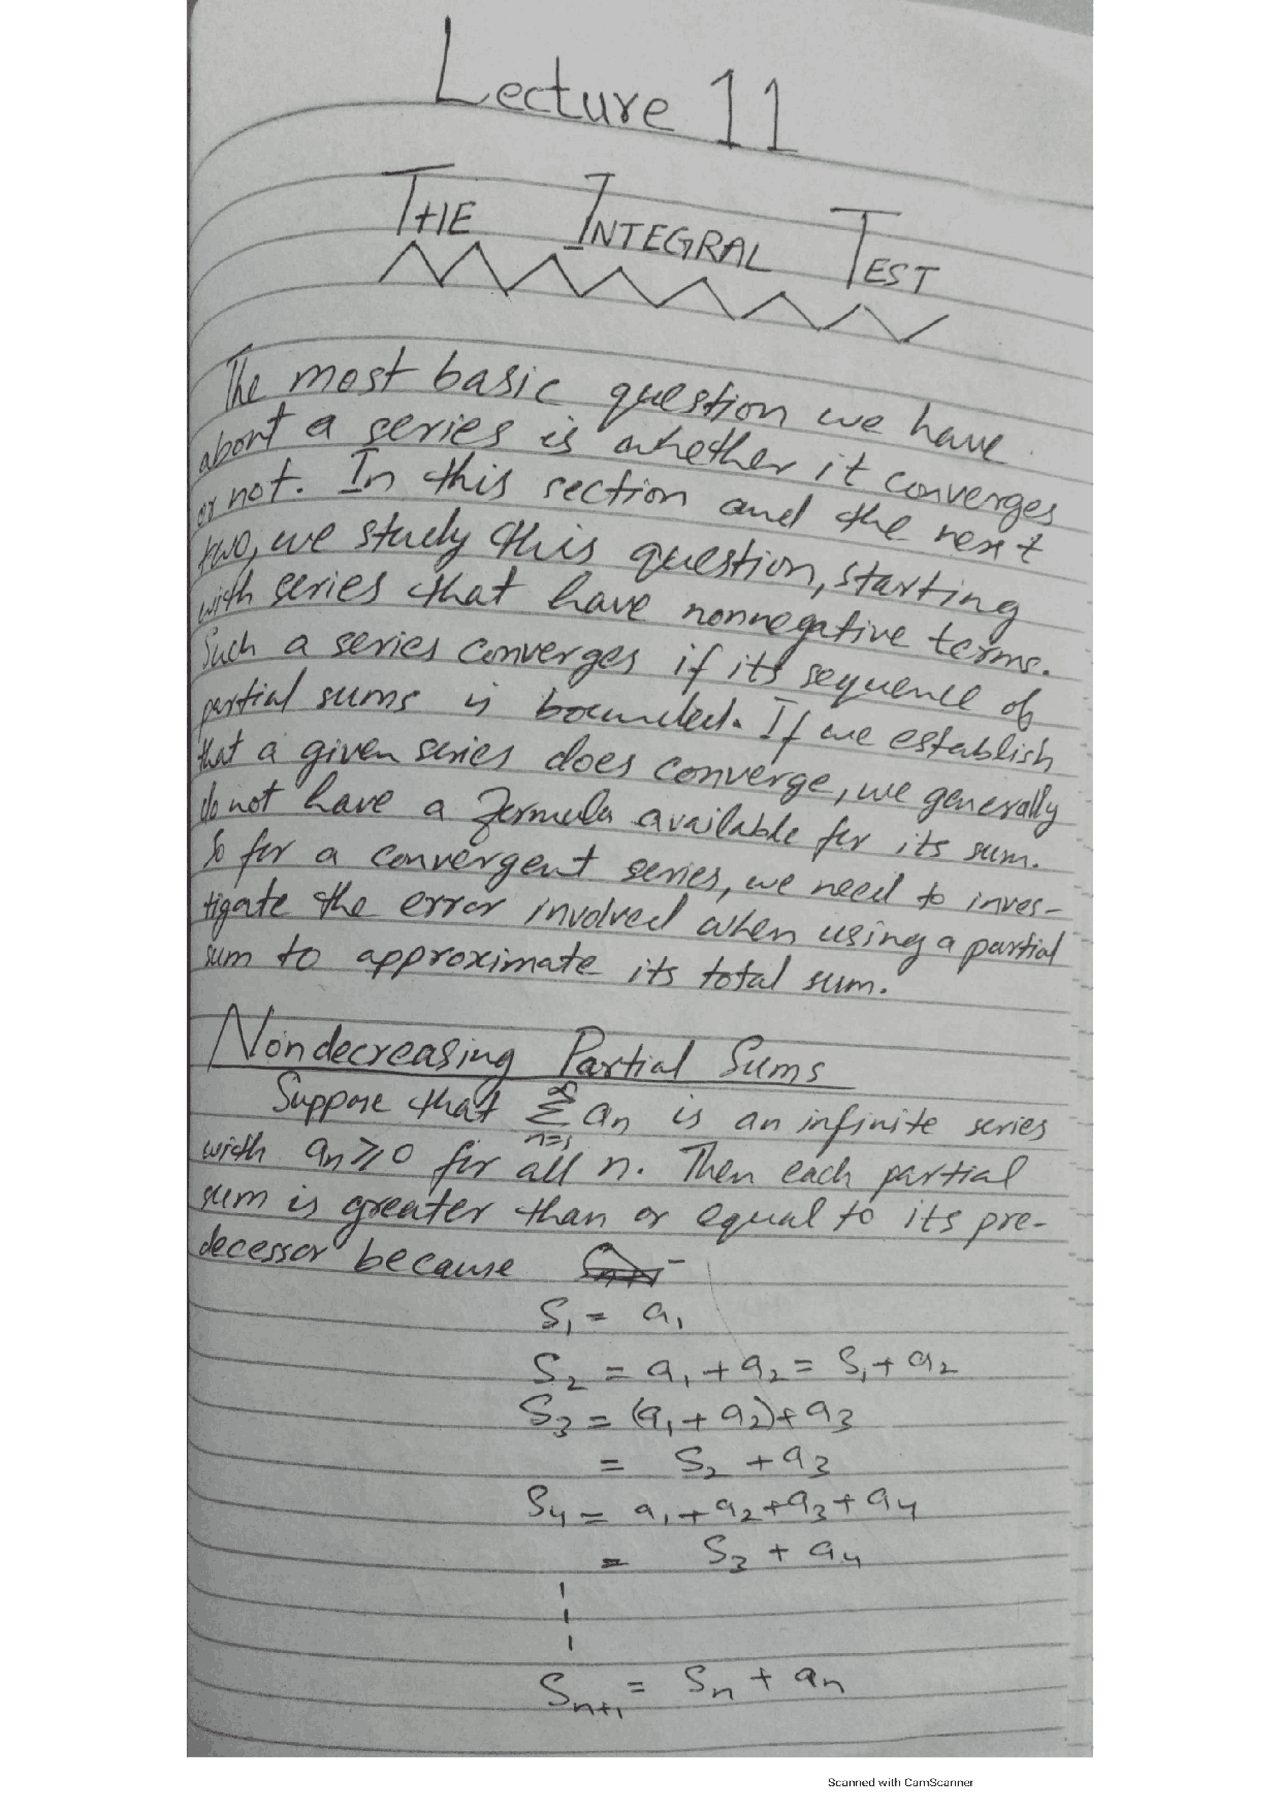 Lecture 11
THE INTEGRAL TEST
The most basic question we have
about a series is whether it converges
or not. In this section and the next
two, we study this question, starting
with series that have nonnegative terms.
Such a series converges if its sequence of
partial sums is bounded. If we establish
that a given series does converge, we generally
do not have a formula available for its sum.
So for a convergent series, we need to inves-
tigate the error involved when using a partial
sum to approximate its total sum.
Nondecreasing Partial Sums
Suppose that ∑_{n=1}^{∞} aₙ is an infinite series
with aₙ ≥ 0 for all n. Then each partial
sum is greater than or equal to its pre-
decessor because
S₁ = a₁
S₂ = a₁ + a₂ = S₁ + a₂
S₃ = (a₁ + a₂) + a₃
= S₂ + a₃
S₄ = a₁ + a₂ + a₃ + a₄
= S₃ + a₄
Sₙ₊₁ = Sₙ + aₙ
Scanned with CamScanner